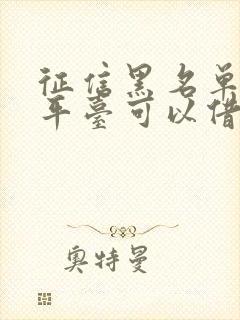 征信黑名单
平臺可以借
奥特曼